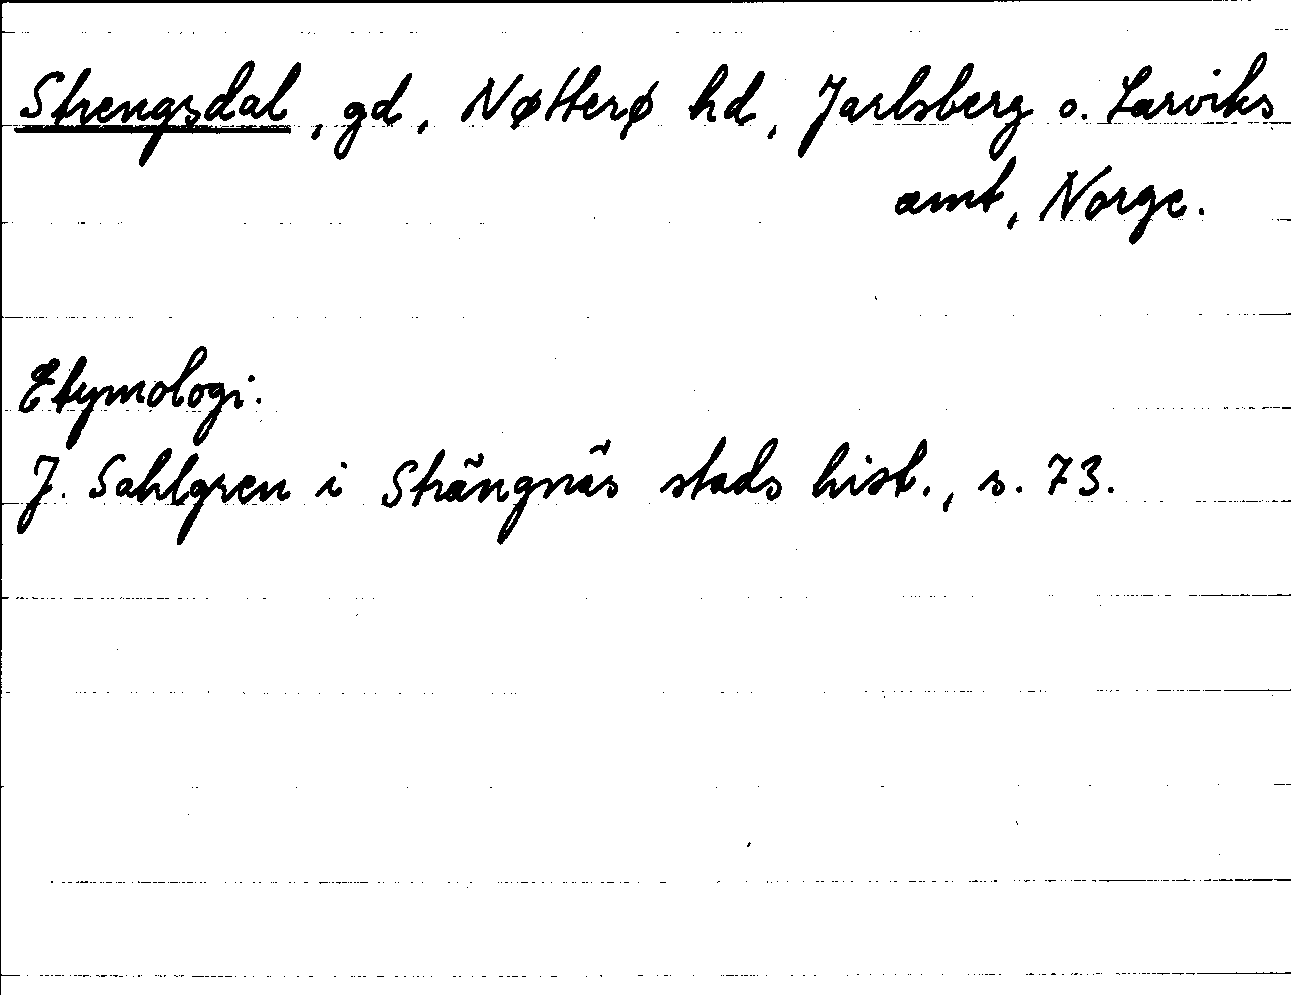 Strengsdal, gd, Nøtterø hd, Jarlsberg o. Larviks
amt, Norge.
Etymologi.
J. Sahlgren i Strängnäs stads hist., s. 73.